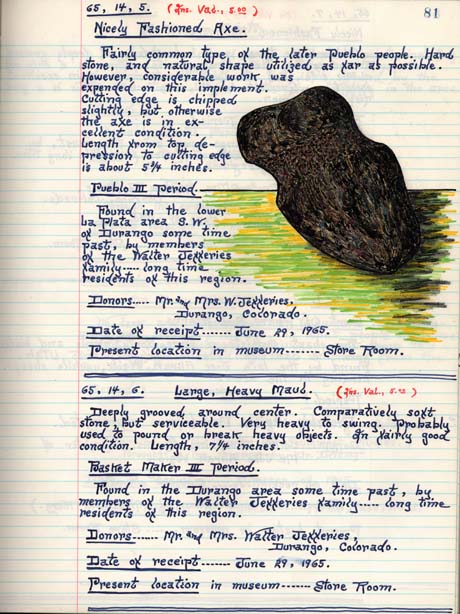 65, 14, 5. (Ins. Val., 5.00) 81
Nicely Fashioned Axe.
Fairly common type, of the later Pueblo people. Hard
stone, and natural shape utilized as far as possible.
However, considerable work, was
expended on this implement.
Cutting edge is chipped
slightly, but otherwise
the axe is in ex-
cellent condition.
Length from top de-
pression to cutting edge
is about 5 3/4 inches.
Pueblo III Period.
Found in the lower
La Plata area S.W.
of Durango some time
past, by members
of the Walter Jefferies
family---- long time
residents of this region.
Donors..... Mr. and Mrs. W. Jefferies.
Durango, Colorado.
Date of receipt------ June 29, 1965.
Present location in museum------- Store Room.
65, 14, 6. Large, Heavy Maul. (Ins. Val., 5.00)
Deeply grooved around center. Comparatively soft
stone, but serviceable. Very heavy to swing. Probably
used to pound or break heavy objects. In fairly good
condition. Length, 7 1/4 inches.
Basket Maker III Period.
Found in the Durango area some time past, by
members of the Walter Jefferies family----- long time
residents of this region.
Donors------ Mr. and Mrs. Walter Jefferies,
Durango, Colorado.
Date of receipt------- June 29, 1965.
Present location in museum------- Store Room.